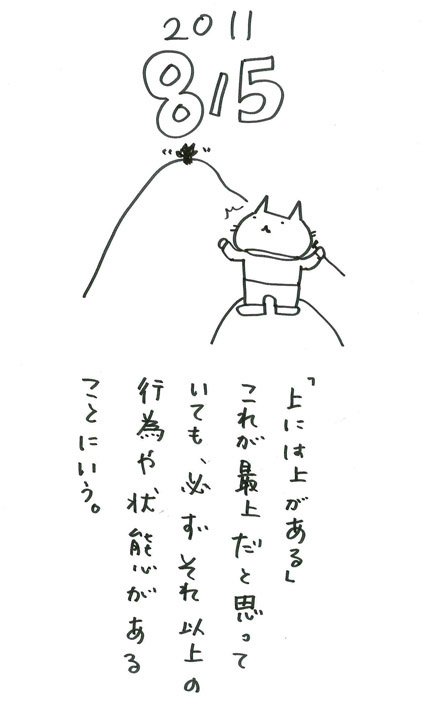 2011
8/5
「上には上がある」
これが最上だと思って
いても、必ずそれ以上の
行為や状態がある
ことにいう。